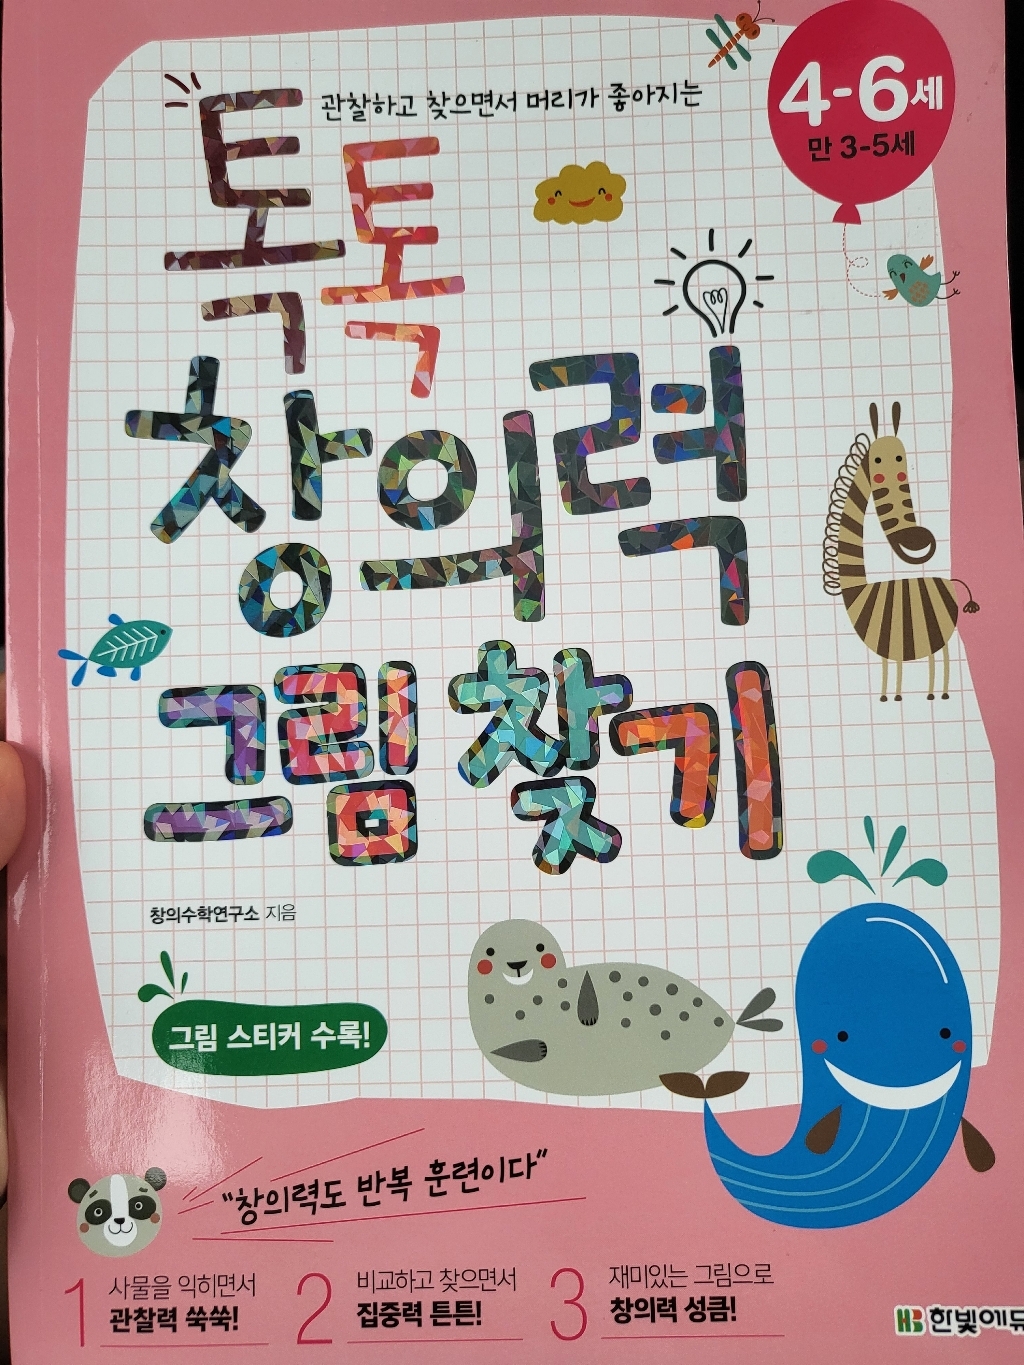 관찰하고 찾으면서 머리가 좋아지는
4-6세
만 3-5세
톡톡
창의력
그림 찾기
창의수학연구소 지음
그림 스티커 수록!
"창의력도 반복 훈련이다"
1 사물을 익히면서
관찰력 쑥쑥!
2 비교하고 찾으면서
집중력 튼튼!
3 재미있는 그림으로
창의력 성큼!
HB 한빛에듀